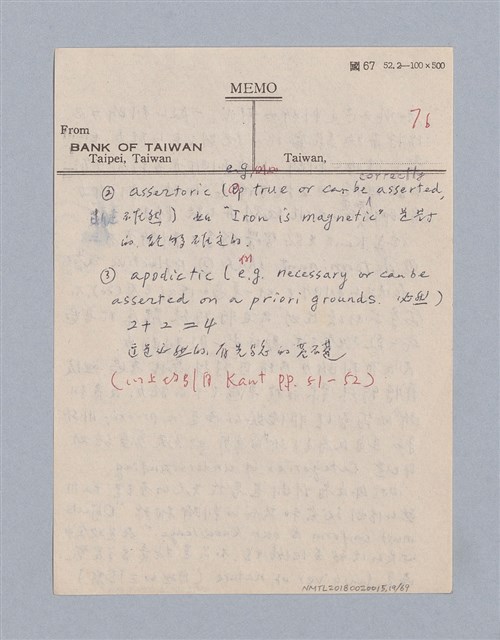 國67 52.2—100×500
MEMO
76
From
BANK OF TAIWAN
Taipei, Taiwan
Taiwan,
e.g.
correctly
② assertoric ( true or can be asserted,
確然) 如 "Iron is magnetic"
的, 能够確定的.
③ apodictic (e.g. necessary or can be
asserted on a priori grounds. 必然)
2+2=4
這是必然的, 有先念的
(以上引自 Kant pp. 51-52)
NMTL20180020015,19/69